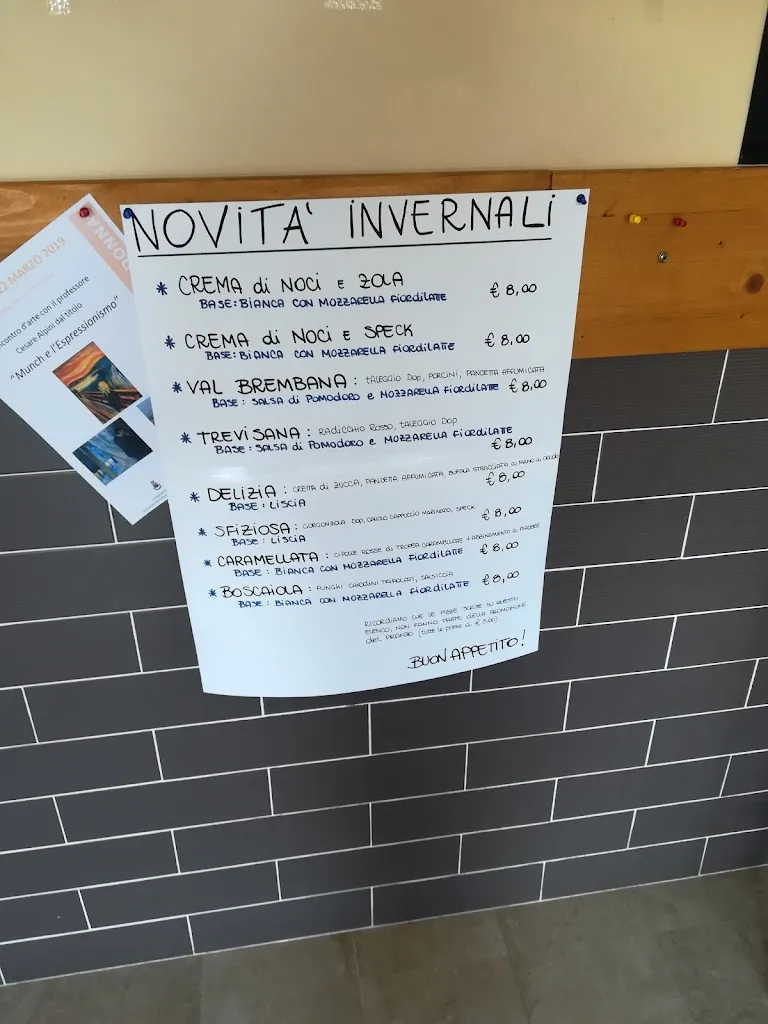 NOVITA' INVERNALI
* CREMA di NOCI E ZOLA € 8,00
BASE: BIANCA CON MOZZARELLA FIORDILATTE
* CREMA di NOCI E SPECK € 8,00
BASE: BIANCA CON MOZZARELLA FIORDILATTE
* VAL BREMBANA: TALEGGIO DOP, PORCINI, PANCETTA AFFUMICATA
BASE: SALSA di POMODORO e MOZZARELLA FIORDILATTE € 8,00
* TREVISANA: RADICCHIO ROSSO, TALEGGIO DOP
BASE: SALSA di POMODORO e MOZZARELLA FIORDILATTE
€ 8,00
* DELIZIA: CREMA di ZUCCA, PANCETTA AFFUMICATA, BUFALA STRACCIATA A MANO A CRUDO
BASE: LISCIA € 8,00
* SFIZIOSA: GORGONZOLA DOP, CAVOLO CAPPUCCIO MARINATO, SPECK
BASE: LISCIA € 8,00
* CARAMELLATA: CIPOLLE ROSSE di TROPEA CARAMELLATE + ABBINAMENTO A PIACERE
BASE: BIANCA CON MOZZARELLA FIORDILATTE € 8,00
* BOSCAIOLA: FUNGHI CHIODINI TRIFOLATI, SALSICCIA
BASE: BIANCA CON MOZZARELLA FIORDILATTE € 8,00
RICORDIAMO CHE LE PIZZE SCRITTE SU QUESTO
ELENCO, NON FANNO PARTE DELLA PROMOZIONE
del PRANZO (TUTTE LE PIZZE A € 5.00)
BUON APPETITO!
2 MARZO 2019
ncontro d'arte con il professore
Cesare Alpini dal titolo
"Munch e l'Espressionismo"